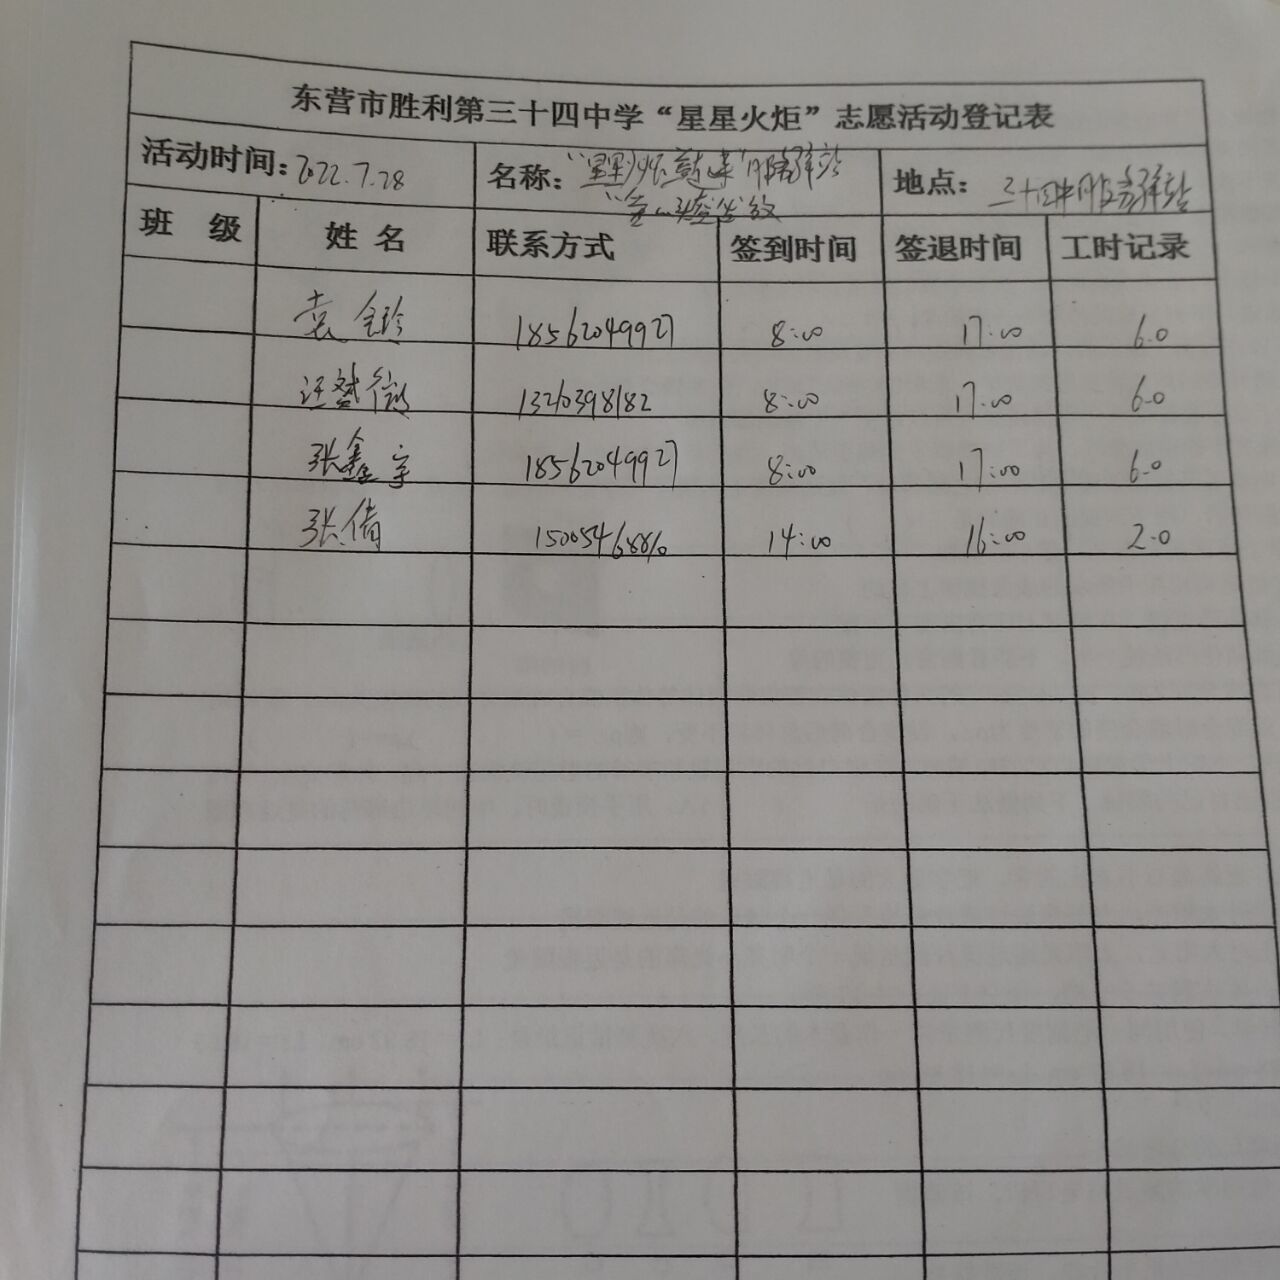 东营市胜利第三十四中学“星星火炬”志愿活动登记表
活动时间:2022.7.28 名称: 地点: 三十四中服务驿站
班 级 姓 名 联系方式 签到时间 签退时间 工时记录
袁 玲 18562049927 8:00 17:00 6.0
汪 微 1320398182 8:00 17:00 6.0
张鑫宇 18562049927 8:00 17:00 6.0
张倩 14:00 16:00 2.0